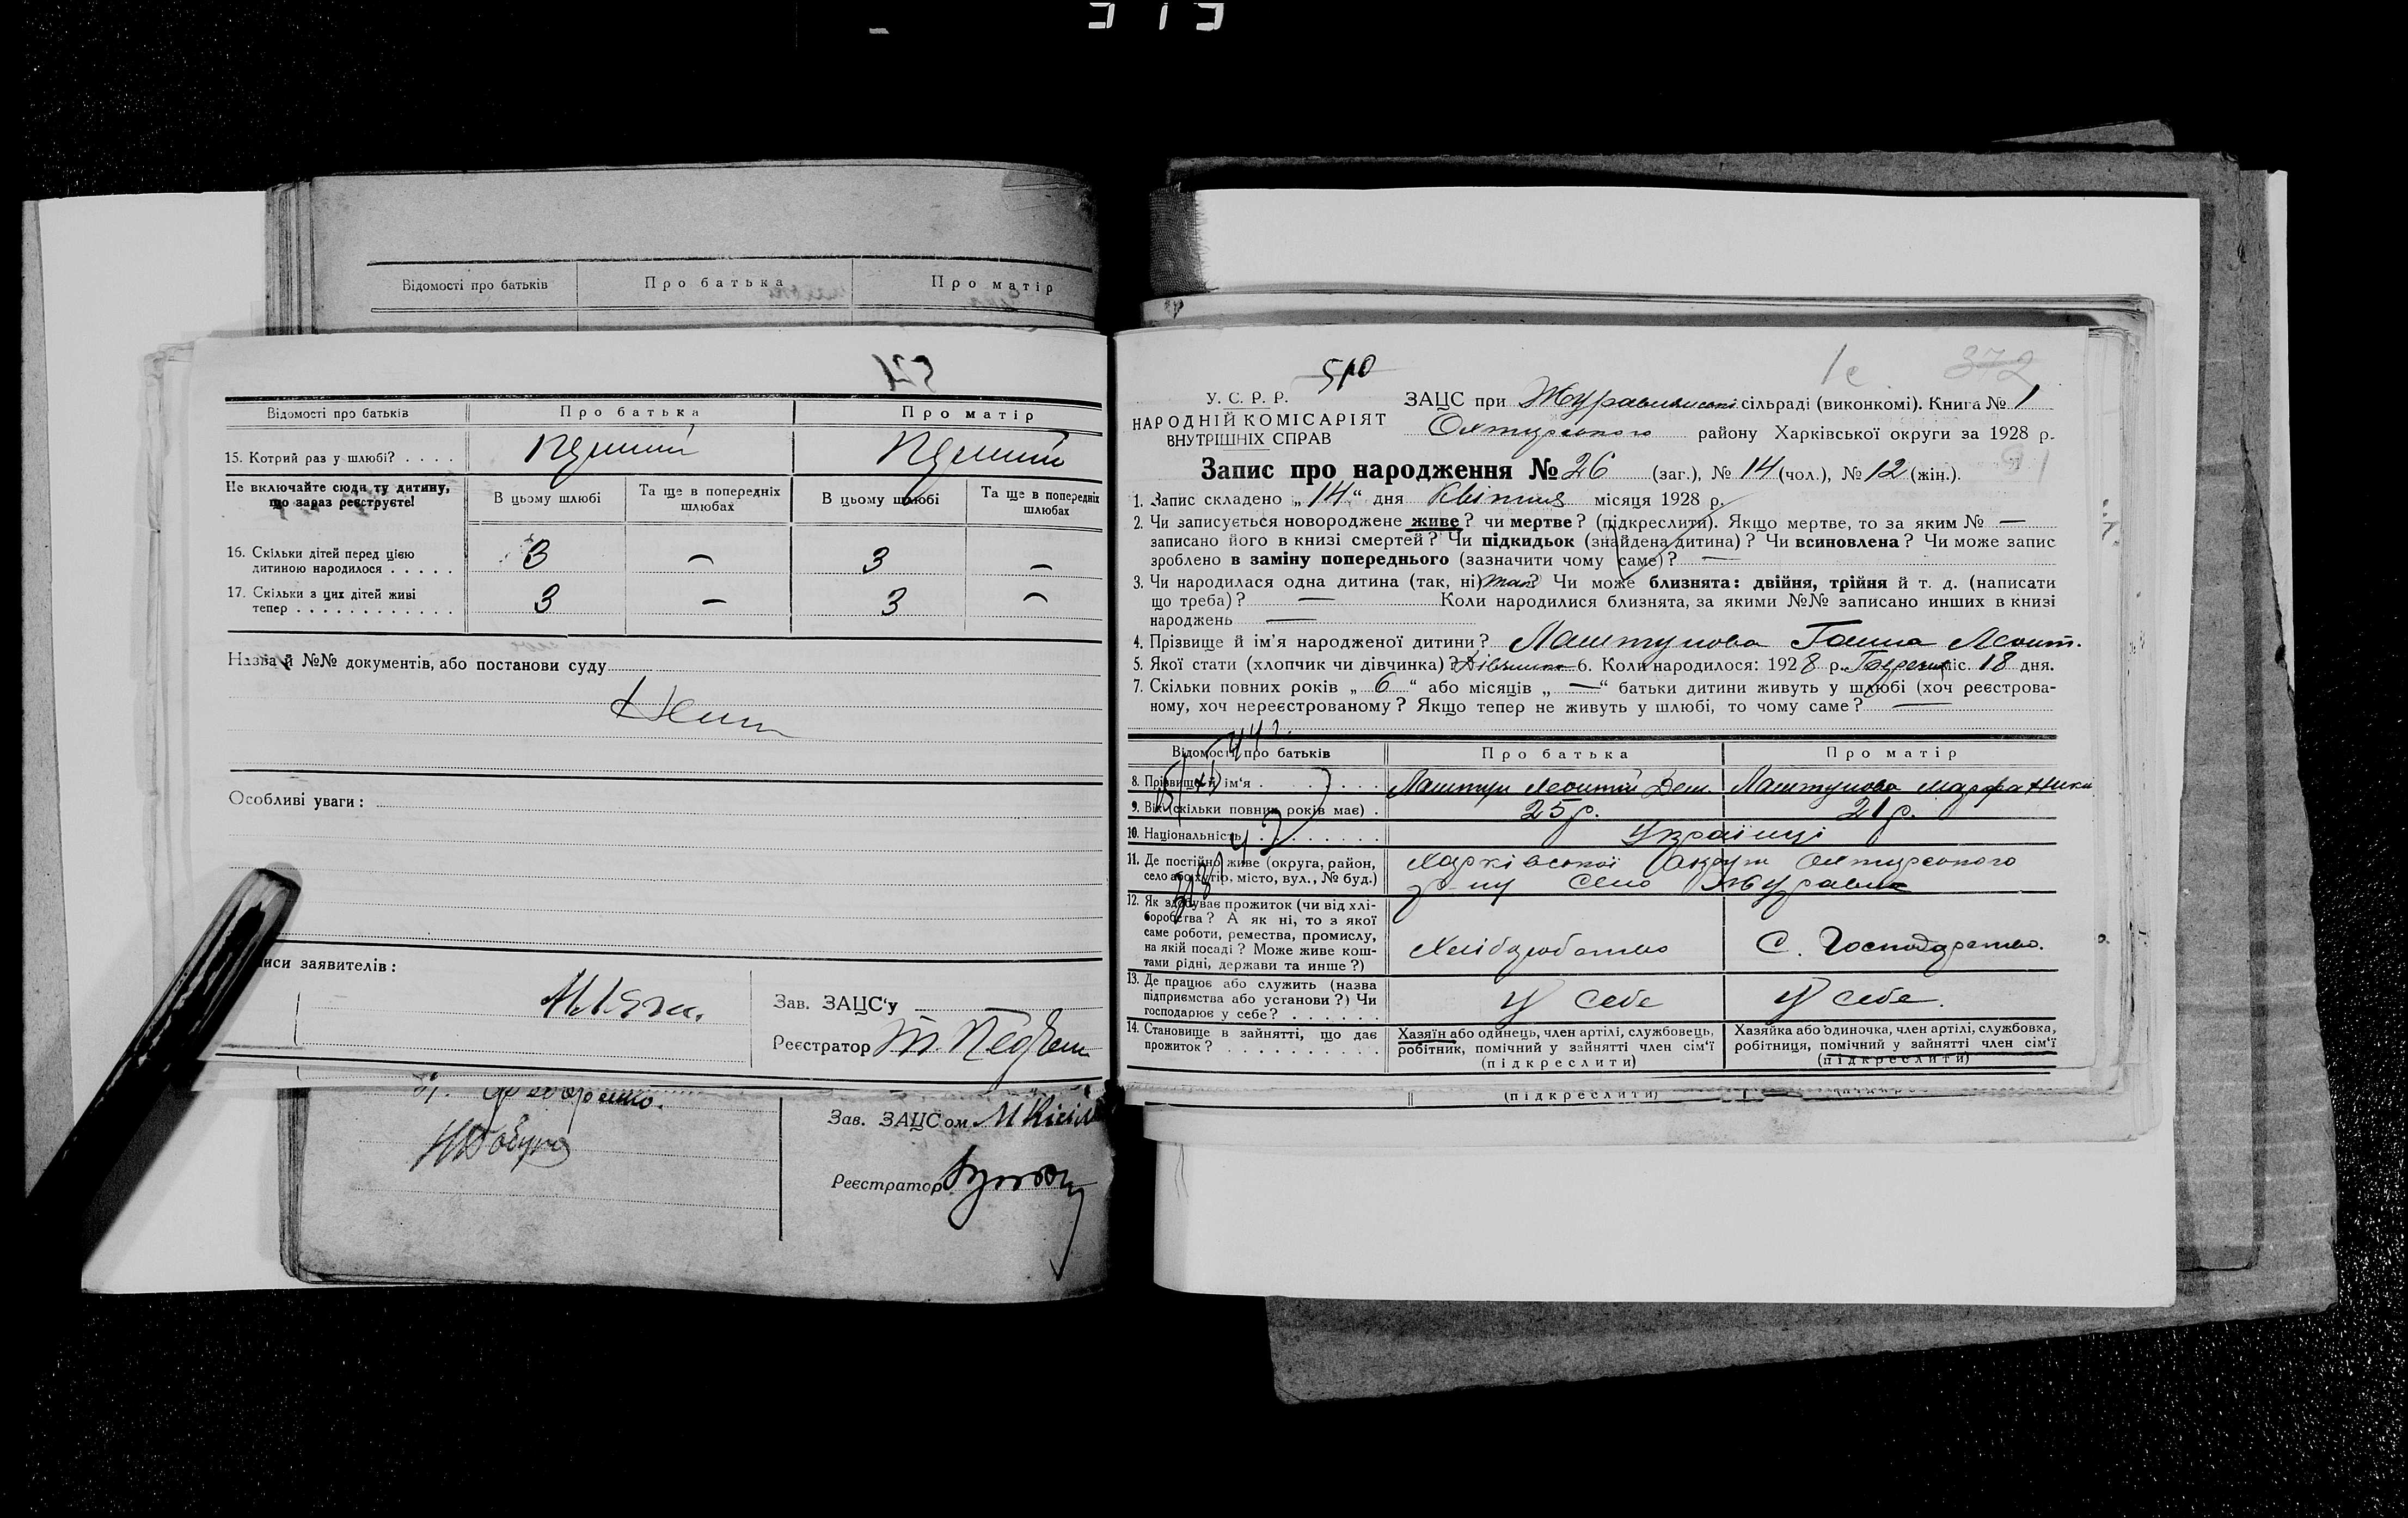 Відомості про батьків Про батька Про матір
Відомості про батьків Про батька Про матір
15. Котрий раз у шлюбі? . . . .
Не включайте сюди ту дитину, що зараз реєструєте!
В цьому шлюбі Та ще в попередніх шлюбах В цьому шлюбі Та ще в попередніх шлюбах
16. Скільки дітей перед цією
дитиною народилося . . . . . 3 — 3 —
17. Скільки з цих дітей живі
тепер . . . . . . . . . . . . 3 — 3 —
Назва й №№ документів, або постанови суду
Особливі уваги:
заявителів:
Зав. ЗАЦС'у
Реєстратор
Зав. ЗАЦСом
Реєстратор
510
372
У. С. Р. Р.
НАРОДНІЙ КОМІСАРІЯТ
ВНУТРІШНІХ СПРАВ
ЗАЦС при сільраді (виконкомі). Книга № 1
району Харківської округи за 1928 р.
Запис про народження № 26 (заг.), № 14 (чол.), № 12 (жін.).
1. Запис складено „ 14 “ дня Квітня місяця 1928 р.
2. Чи записується новороджене живе? чи мертве? (підкреслити). Якщо мертве, то за яким № —
записано його в книзі смертей? Чи підкидьок (знайдена дитина)? Чи всиновлена? Чи може запис
зроблено в заміну попереднього (зазначити чому саме)? —
3. Чи народилася одна дитина (так, ні) так? Чи може близнята: двійня, трійня й т. д. (написати
що треба)? — Коли народилися близнята, за якими №№ записано инших в книзі
народжень —
4. Прізвище й ім'я народженої дитини? Лаштунова Ганна Леонт.
5. Якої стати (хлопчик чи дівчинка)? Дівчинка 6. Коли народилося: 1928 р. міс. 18 дня.
7. Скільки повних років „ 6 “ або місяців „ — “ батьки дитини живуть у шлюбі (хоч реєстрова-
ному, хоч нереєстрованому? Якщо тепер не живуть у шлюбі, то чому саме? —
Відомості про батьків Про батька Про матір
8. Прізвище й ім'я . . . . Лаштун Леонтій Лаштунова Марфа
9. Вік (скільки повних років має) . 25 р. 21 р.
10. Національність . . . . Українці
11. Де постійно живе (округа, район,
село або хутір, місто, вул., № буд.) Харківської Округи
село
12. Як здобуває прожиток (чи від хлі-
боробства? А як ні, то з якої
саме роботи, ремества, промислу,
на якій посаді? Може живе кош-
тами рідні, держави та инше?) Хліборобство С. Господарство.
13. Де працює або служить (назва
підприємства або установи?) Чи
господарює у себе? . . . . . . У себе У себе.
14. Становище в зайнятті, що дає
прожиток? . . . . . . . . . .
Хазяїн або одинець, член артілі, службовець,
робітник, помічний у зайнятті член сім'ї
(підкреслити)
Хазяйка або одиночка, член артілі, службовка,
робітниця, помічний у зайнятті член сім'ї
(підкреслити)
(підкреслити)